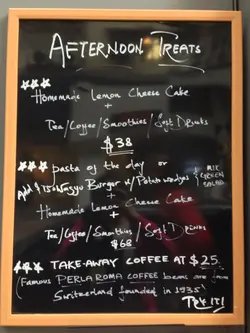 AFTERNOON TREATS
Homemade Lemon Cheese Cake
+
Tea/Coffee/Smoothies/Soft Drinks
$38
Pasta of the day or
Add $15 Wagyu Burger w/ Potato wedges & MIX GREEN SALAD
+
Homemade Lemon Cheese Cake
+
Tea/Coffee/Smoothies/Soft Drinks
$68
TAKE-AWAY COFFEE AT $25.
(Famous PERLA ROMA COFFEE beans are from
Switzerland founded in 1935
TRY IT!